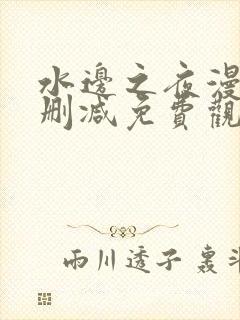 水邊之夜漫
刪減免費觀
雨川透子 裏